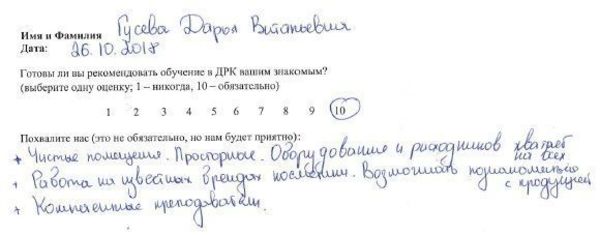 Имя и Фамилия Гусева Дарья Витальевна
Дата: 26.10.2018
Готовы ли вы рекомендовать обучение в ДРК вашим знакомым?
(выберите одну оценку; 1 – никогда, 10 – обязательно)
1 2 3 4 5 6 7 8 9 10
Похвалите нас (это не обязательно, но нам будет приятно):
+ Чистые помещения. Просторные. Оборудования и расходников хватает на всех
+ Работа на известных брендах косметики. Возможность познакомиться с продукцией
+ Компетентные преподаватели.